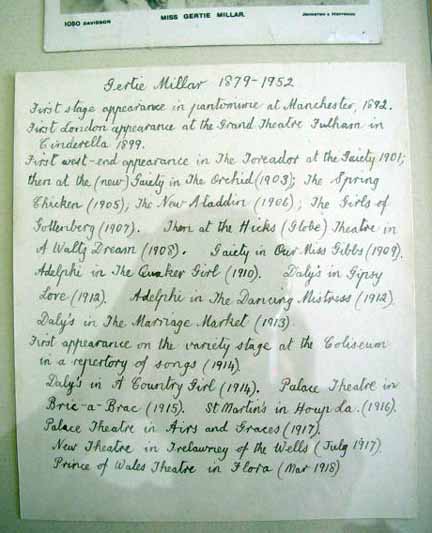 1050 DAVIDSON
MISS GERTIE MILLAR.
JOHNSTON & HOFFMANN
Gertie Millar 1879-1952
First stage appearance in pantomime at Manchester, 1892.
First London appearance at the Grand Theatre Fulham in
Cinderella 1899.
First west-end appearance in The Toreador at the Gaiety 1901;
then at the (new) Gaiety in The Orchid (1903); The Spring
Chicken (1905); The New Aladdin (1906); The Girls of
Gottenberg (1907). Then at the Hicks (Globe) Theatre in
A Waltz Dream (1908). Gaiety in Our Miss Gibbs (1909).
Adelphi in The Quaker Girl (1910). Daly's in Gipsy
Love (1912). Adelphi in The Dancing Mistress (1912).
Daly's in The Marriage Market (1913).
First appearance on the variety stage at the Coliseum
in a repertory of songs (1914).
Daly's in A Country Girl (1914). Palace Theatre in
Bric-a-Brac (1915). St Martin's in Houp La. (1916).
Palace Theatre in Airs and Graces (1917).
New Theatre in Trelawney of the Wells (July 1917).
Prince of Wales Theatre in Flora (Mar 1918)